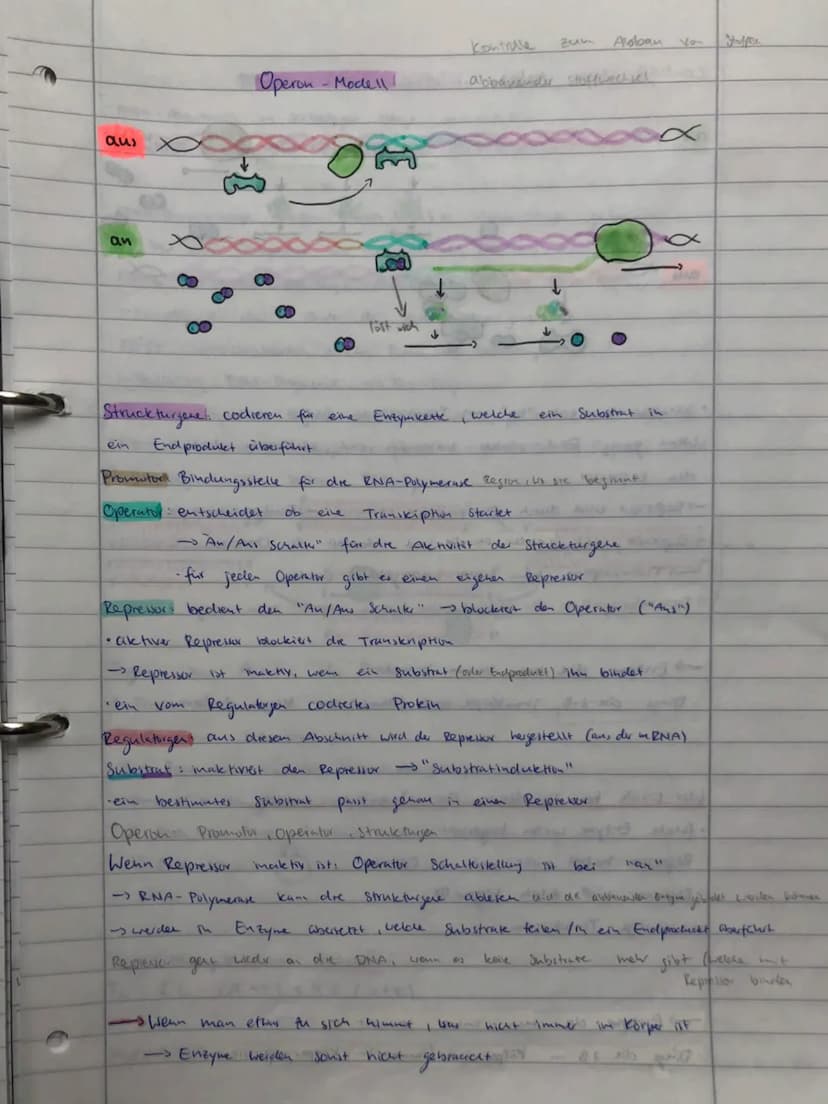 Kontrolle zum Abbau von Stoffen
Operon-Modell abbauender Stoffwechsel
aus
an
löst sich
Struckturgene: codieren für eine Enzymkette, welche ein Substrat in
ein Endprodukt überführt
Promotor Bindungsstelle für die RNA-Polymerase Region, wo sie beginnt
Operator: entscheidet ob eine Transkription startet
→ "An/Aus Schalter" für die Aktivität der Struckturgene
· für jeden Operator gibt es einen eigenen Repressor
Repressor: bedient den "An/Aus Schalter" → blockiert den Operator ("Aus")
• aktiver Repressor blockiert die Transkription
→ Repressor ist inaktiv, wenn ein Substrat (oder Endprodukt) ihn bindet
· ein vom Regulatorgen codiertes Protein
Regulatorgen: aus diesem Abschnitt wird der Repressor hergestellt (aus der mRNA)
Substrat: inaktiviert den Repressor → "Substratinduktion"
· ein bestimmtes Substrat passt genau in einen Repressor
Operon: Promotor, Operator, Strukturgen
Wenn Repressor inaktiv ist: Operator Schalterstellung ist bei "an"
→ RNA-Polymerase kann die Strukturgene ablesen und die abbauenden Enzyme werden können
→ werden in Enzyme übersetzt, welche Substrate teilen / in ein Endproduckt überführt
Repressor geht wieder an die DNA, wenn es keine Substrate mehr gibt (welche mit
Repressor binden
→ Wenn man etwas zu sich nimmt, was nicht immer im Körper ist
→ Enzyme werden sonst nicht gebraucht